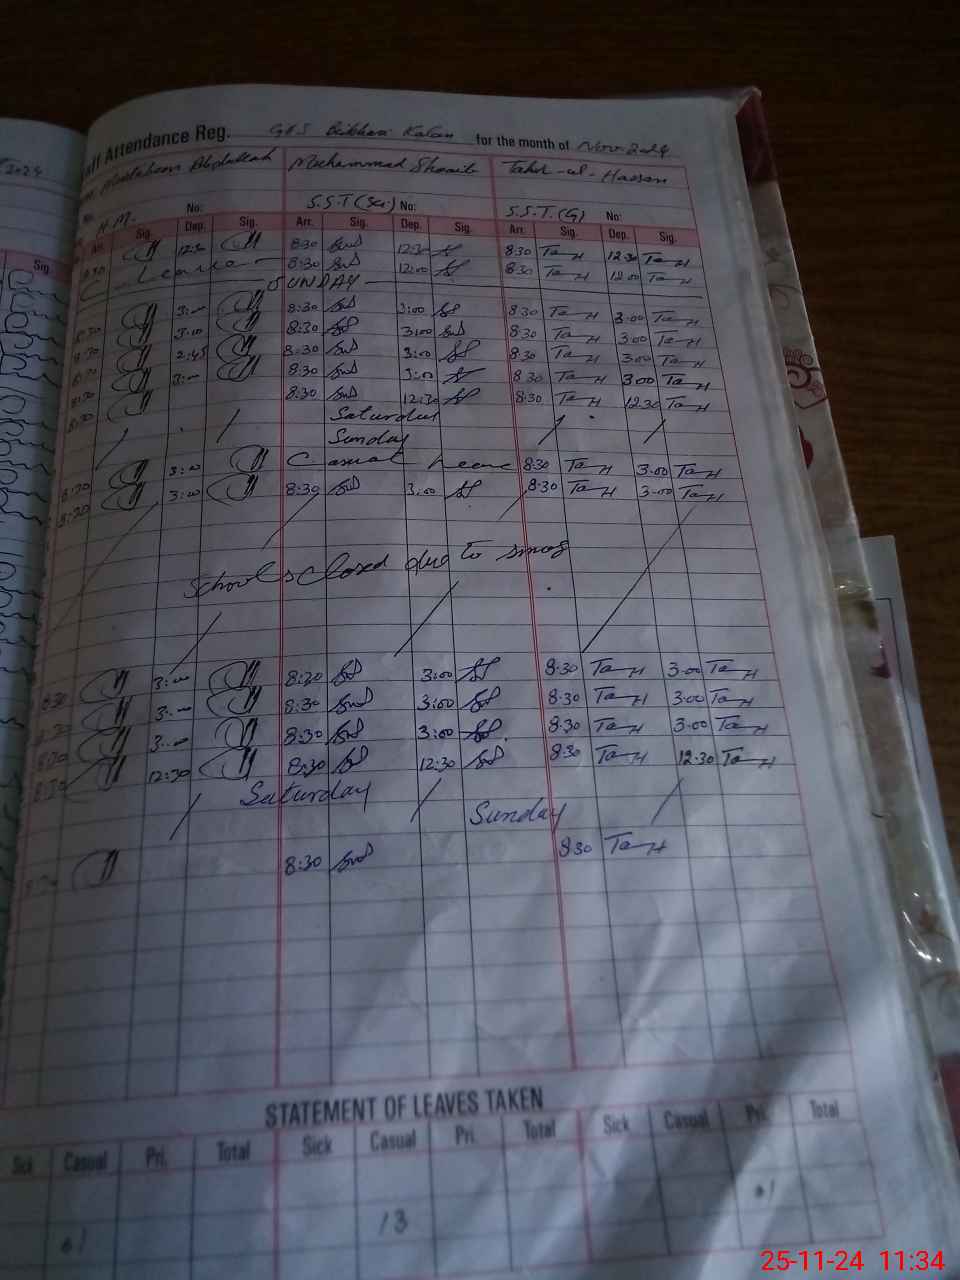 Attendance Reg. GHS Kalan for the month of Nov. 2024
Abdullah Muhammad Shoaib Tahir-ul-Hassan
H.M. No: S.S.T (Sci) No: S.S.T. (G) No:
Arr. Sig. Dep. Sig. Arr. Sig. Dep. Sig. Arr. Sig. Dep. Sig.
8:30 12:30 8:30 12:30 8:30 TaH 12:30 TaH
C. Leave 8:30 12:00 8:30 TaH 12:00 TaH
SUNDAY
8:30 3:00 8:30 3:00 8:30 TaH 3:00 TaH
8:30 3:00 8:30 3:00 8:30 TaH 3:00 TaH
8:30 2:45 8:30 3:00 8:30 TaH 3:00 TaH
8:30 3:00 8:30 3:00 8:30 TaH 3:00 TaH
8:30 8:30 12:30 8:30 TaH 12:30 TaH
Saturday
Sunday
8:30 3:00 Casual Leave 8:30 TaH 3:00 TaH
8:30 3:00 8:30 3:00 8:30 TaH 3:00 TaH
Schools closed due to smog
8:30 3:00 8:30 3:00 8:30 TaH 3:00 TaH
8:30 3:00 8:30 3:00 8:30 TaH 3:00 TaH
8:30 3:00 8:30 3:00 8:30 TaH 3:00 TaH
8:30 12:30 8:30 12:30 8:30 TaH 12:30 TaH
Saturday Sunday
8:30 8:30 TaH
STATEMENT OF LEAVES TAKEN
Sick Casual Pri. Total Sick Casual Pri. Total Sick Casual Pri. Total
01 13 01
25-11-24 11:34